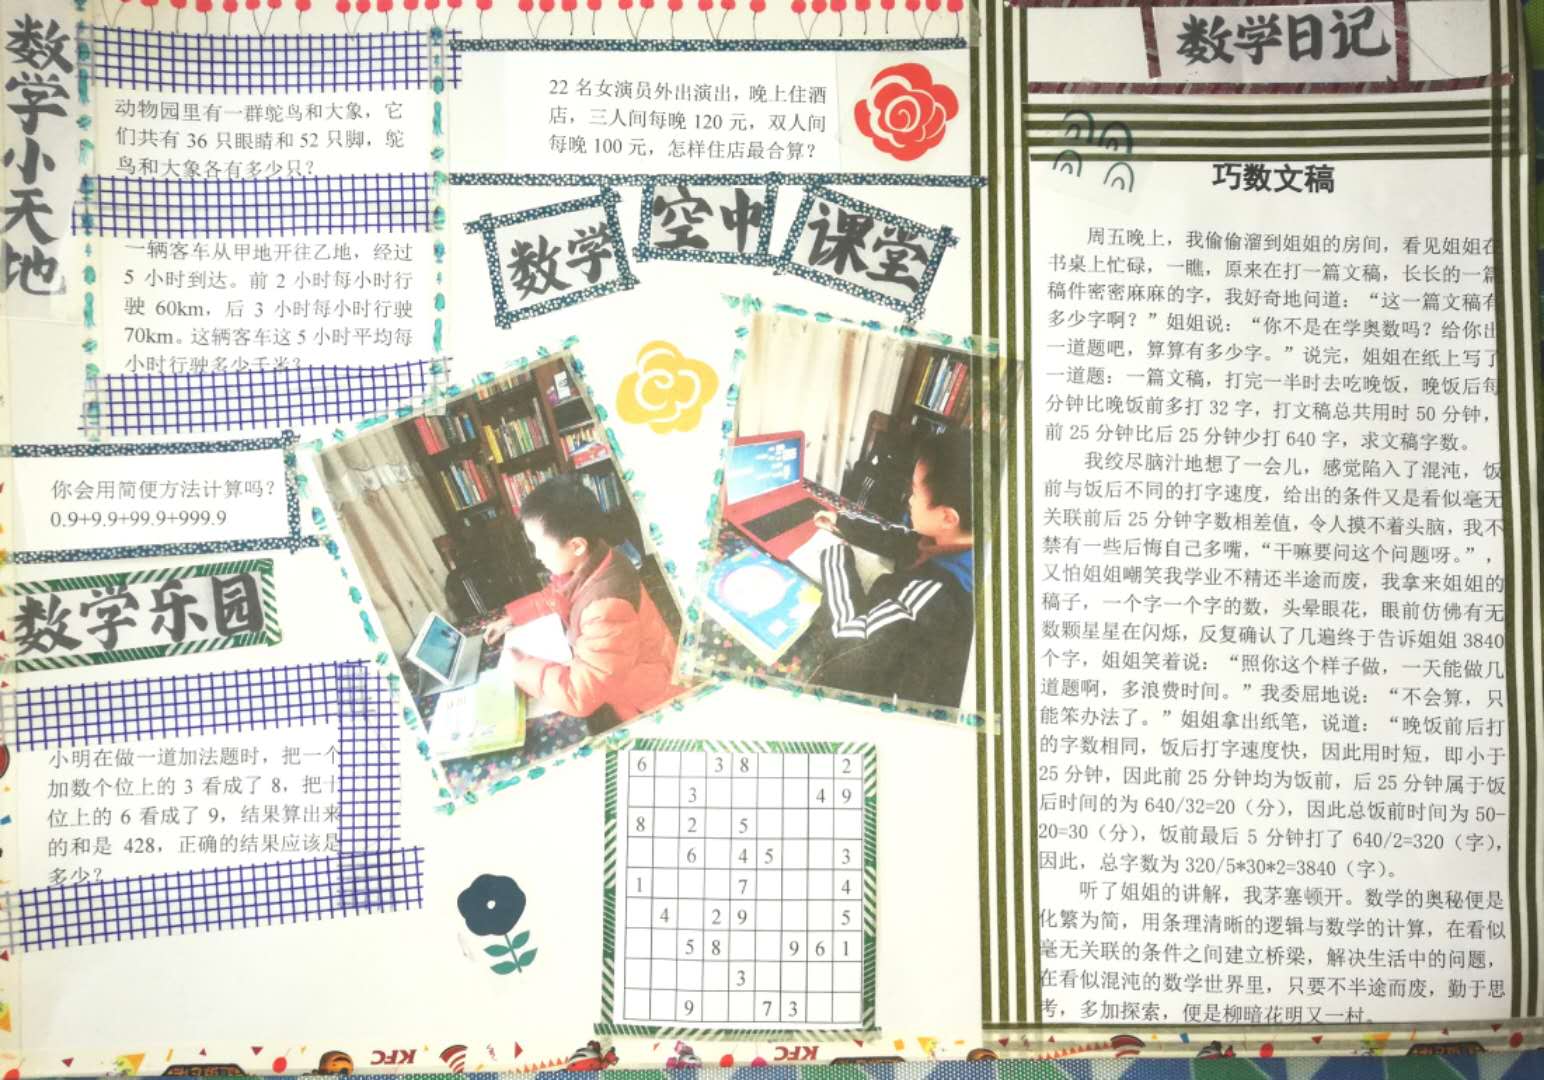 数学小天地
动物园里有一群鸵鸟和大象，它
们共有 36 只眼睛和 52 只脚，鸵
鸟和大象各有多少只？
一辆客车从甲地开往乙地，经过
5 小时到达。前 2 小时每小时行
驶 60km，后 3 小时每小时行驶
70km。这辆客车这 5 小时平均每
小时行驶多少千米？
你会用简便方法计算吗？
0.9+9.9+99.9+999.9
数学乐园
小明在做一道加法题时，把一个
加数个位上的 3 看成了 8，把十
位上的 6 看成了 9，结果算出来
的和是 428，正确的结果应该是
多少？
22 名女演员外出演出，晚上住酒
店，三人间每晚 120 元，双人间
每晚 100 元，怎样住店最合算？
数学 空中 课堂
6 3 8 2
3 4 9
8 2 5
6 4 5 3
1 7 4
4 2 9 5
5 8 9 6 1
3
9 7 3
数学日记
巧数文稿
周五晚上，我偷偷溜到姐姐的房间，看见姐姐在
书桌上忙碌，一瞧，原来在打一篇文稿，长长的一篇
稿件密密麻麻的字，我好奇地问道：“这一篇文稿有
多少字啊？”姐姐说：“你不是在学奥数吗？给你出
一道题吧，算算有多少字。”说完，姐姐在纸上写了
一道题：一篇文稿，打完一半时去吃晚饭，晚饭后每
分钟比晚饭前多打 32 字，打文稿总共用时 50 分钟，
前 25 分钟比后 25 分钟少打 640 字，求文稿字数。
我绞尽脑汁地想了一会儿，感觉陷入了混沌，饭
前与饭后不同的打字速度，给出的条件又是看似毫无
关联前后 25 分钟字数相差值，令人摸不着头脑，我不
禁有一些后悔自己多嘴，“干嘛要问这个问题呀。”，
又怕姐姐嘲笑我学业不精还半途而废，我拿来姐姐的
稿子，一个字一个字的数，头晕眼花，眼前仿佛有无
数颗星星在闪烁，反复确认了几遍终于告诉姐姐 3840
个字，姐姐笑着说：“照你这个样子做，一天能做几
道题啊，多浪费时间。”我委屈地说：“不会算，只
能笨办法了。”姐姐拿出纸笔，说道：“晚饭前后打
的字数相同，饭后打字速度快，因此用时短，即小于
25 分钟，因此前 25 分钟均为饭前，后 25 分钟属于饭
后时间的为 640/32=20（分），因此总饭前时间为 50-
20=30（分），饭前最后 5 分钟打了 640/2=320（字），
因此，总字数为 320/5*30*2=3840（字）。
听了姐姐的讲解，我茅塞顿开。数学的奥秘便是
化繁为简，用条理清晰的逻辑与数学的计算，在看似
毫无关联的条件之间建立桥梁，解决生活中的问题，
在看似混沌的数学世界里，只要不半途而废，勤于思
考，多加探索，便是柳暗花明又一村。
KFC
KFC